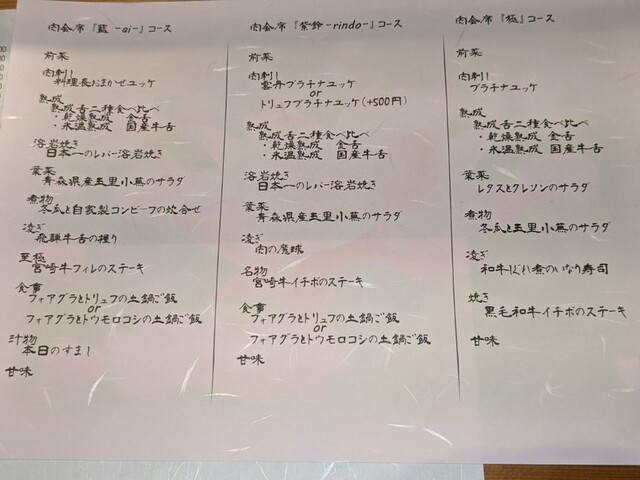 肉会席『藍 -ai-』コース
前菜
肉刺し
料理長おまかせユッケ
熟成
熟成舌二種食べ比べ
・乾燥熟成 舎舌
・氷温熟成 国産牛舌
溶岩焼き
日本一のレバー溶岩焼き
葉菜
青森県産五里小蕪のサラダ
煮物
冬瓜と自家製コンビーフの炊合せ
凌ぎ
飛騨牛舌の握り
至極
宮崎牛フィレのステーキ
食事
フォアグラとトリュフの土鍋ご飯
or
フォアグラとトウモロコシの土鍋ご飯
汁物
本日のすまし
甘味
肉会席『紫鈴-rindo-』コース
前菜
肉刺し
雲丹プラチナユッケ
or
トリュフプラチナユッケ(+500円)
熟成
熟成舌二種食べ比べ
・乾燥熟成 舎舌
・氷温熟成 国産牛舌
溶岩焼き
日本一のレバー溶岩焼き
葉菜
青森県産五里小蕪のサラダ
凌ぎ
肉の魔球
名物
宮崎牛イチボのステーキ
食事
フォアグラとトリュフの土鍋ご飯
or
フォアグラとトウモロコシの土鍋ご飯
甘味
肉会席『極』コース
前菜
肉刺し
プラチナユッケ
熟成
熟成舌二種食べ比べ
・乾燥熟成 舎舌
・氷温熟成 国産牛舌
葉菜
レタスとクレソンのサラダ
煮物
冬瓜と五里小蕪のサラダ
凌ぎ
和牛しぐれ煮のいなり寿司
焼き
黒毛和牛イチボのステーキ
甘味